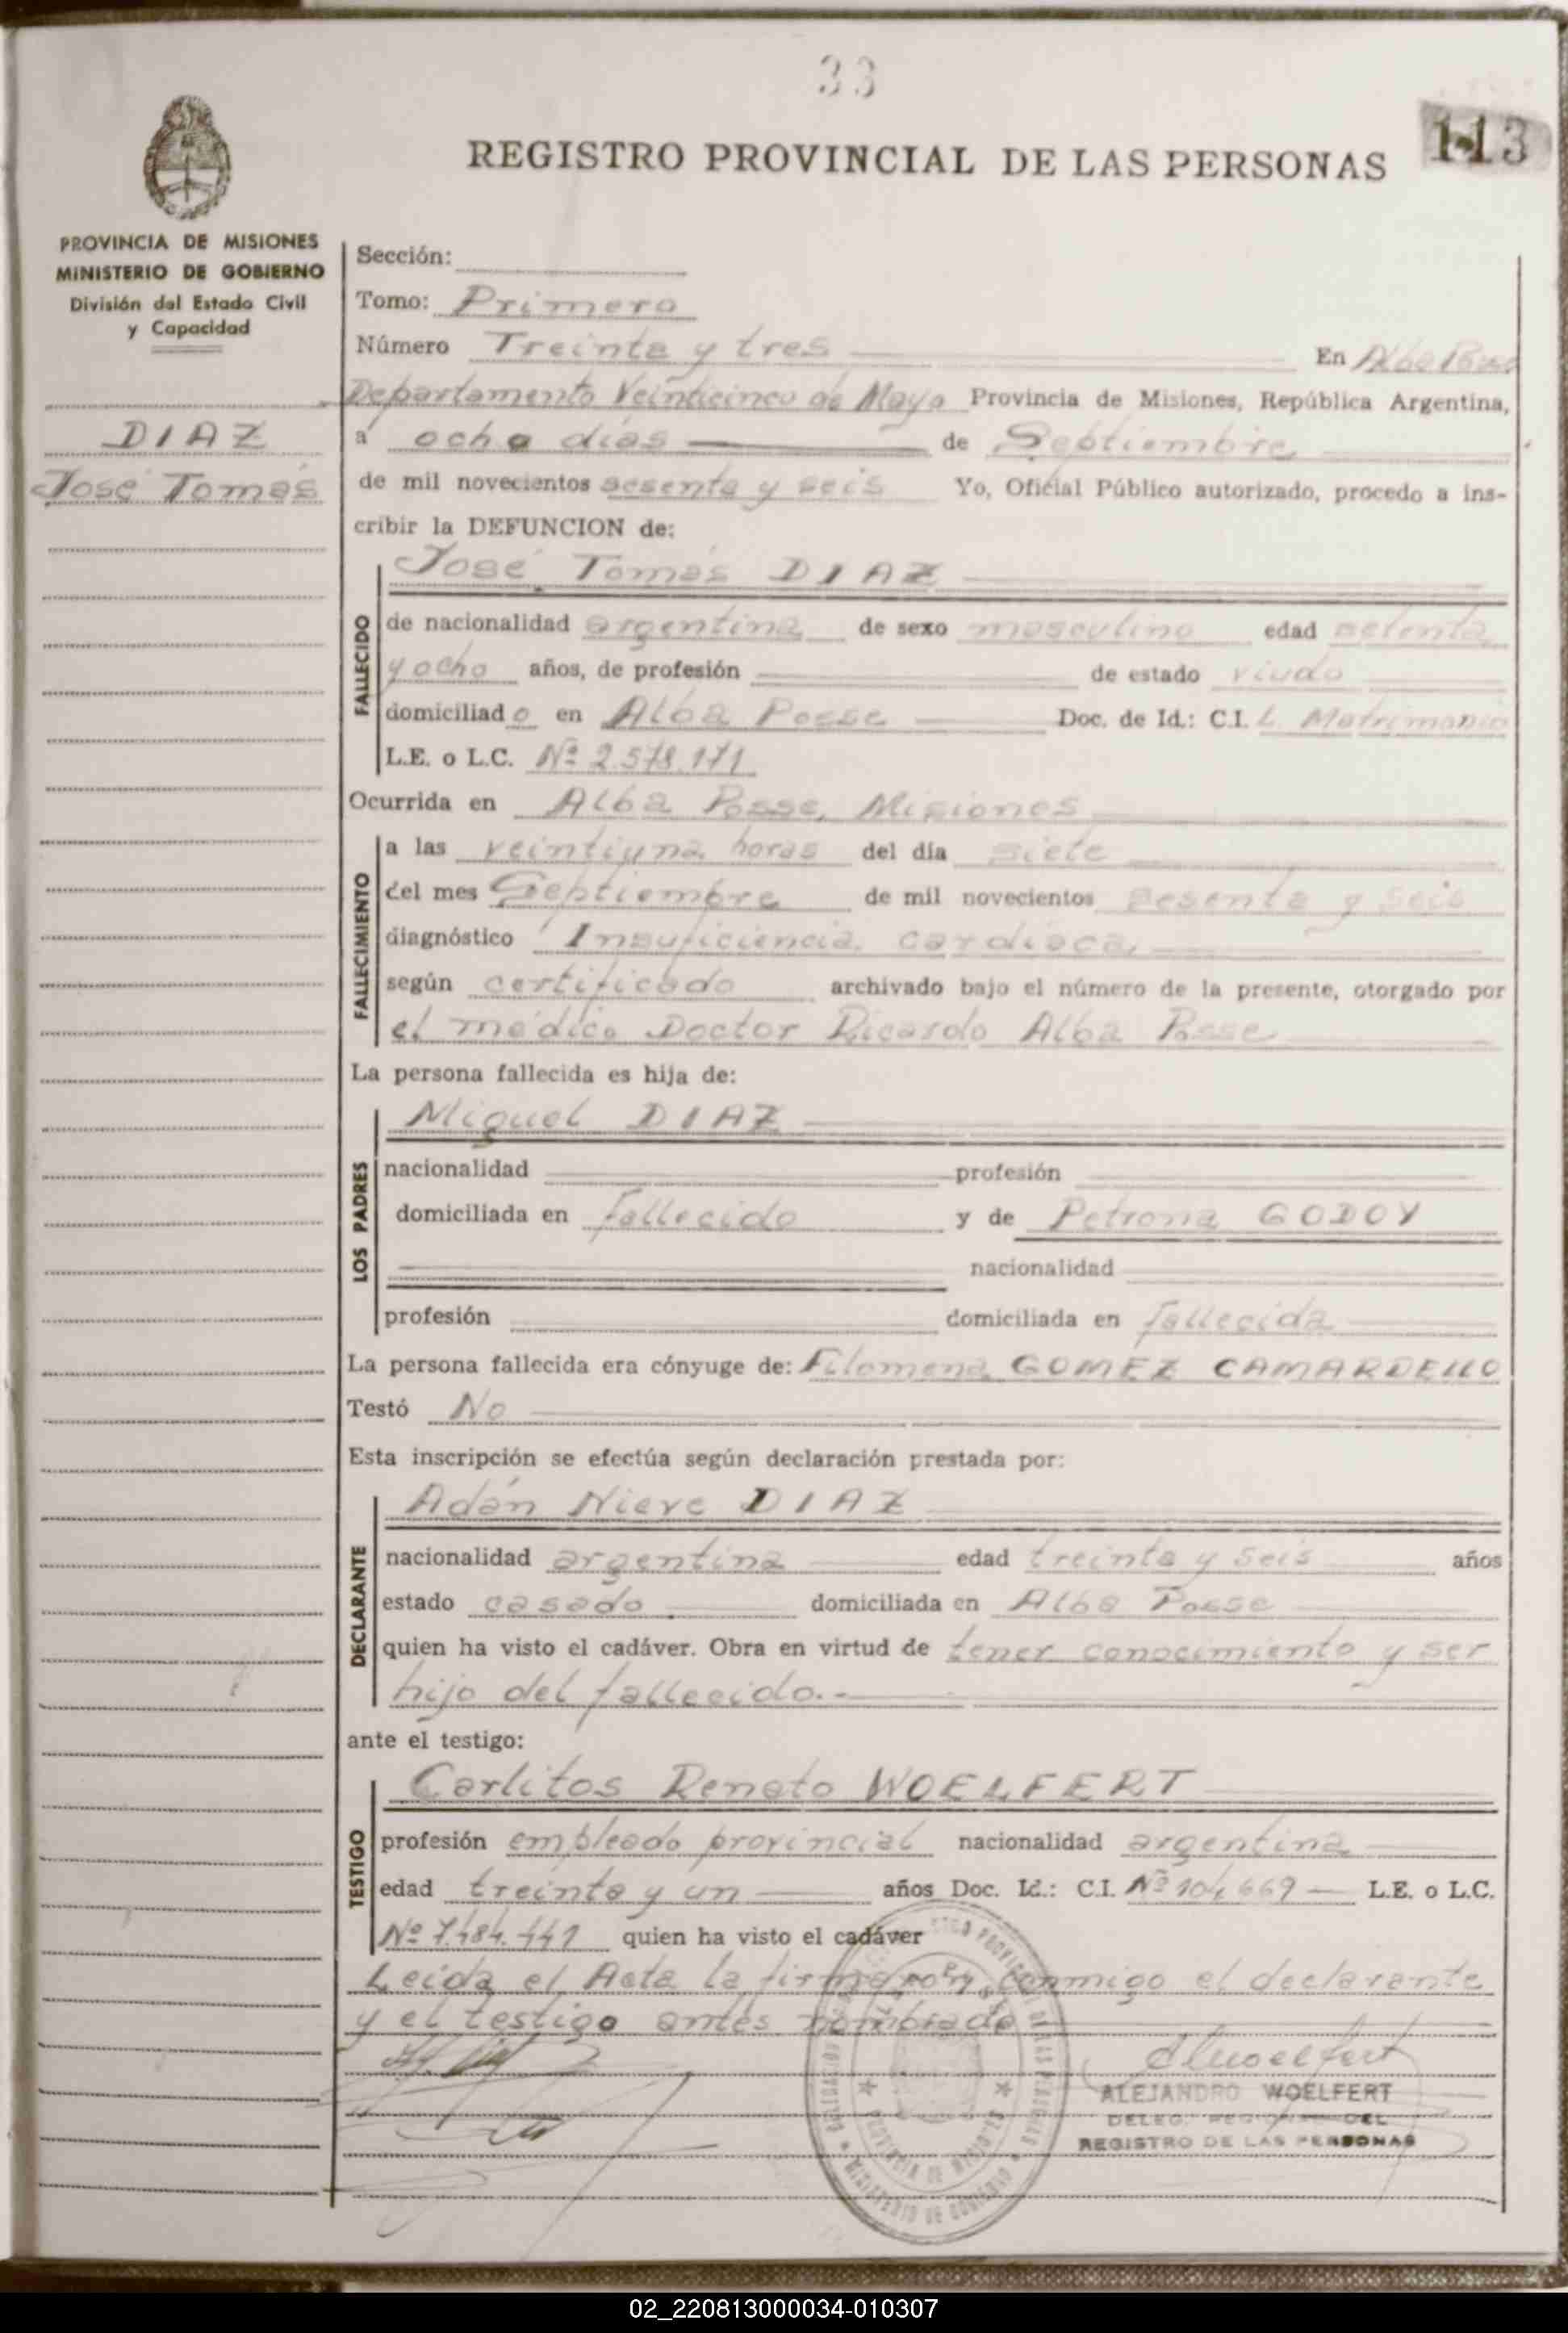 33
113
REGISTRO PROVINCIAL DE LAS PERSONAS
PROVINCIA DE MISIONES
MINISTERIO DE GOBIERNO
División del Estado Civil
y Capacidad
DIAZ
José Tomás
Sección:
Tomo: Primero
Número Treinta y tres En Alba Posse
Departamento Veinticinco de Mayo Provincia de Misiones, República Argentina,
a ocho días de Septiembre
de mil novecientos sesenta y seis Yo, Oficial Público autorizado, procedo a ins-
cribir la DEFUNCION de:
José Tomás DIAZ
FALLECIDO
de nacionalidad argentina de sexo masculino edad setenta
y ocho años, de profesión de estado viudo
domiciliado en Alba Posse Doc. de Id.: C.I. L. Matrimonio
L.E. o L.C. Nº 2.578.171
Ocurrida en Alba Posse, Misiones
FALLECIMIENTO
a las veintiuna horas del día siete
del mes Septiembre de mil novecientos sesenta y seis
diagnóstico Insuficiencia cardíaca
según certificado archivado bajo el número de la presente, otorgado por
el médico Doctor Ricardo Alba Posse
La persona fallecida es hija de:
LOS PADRES
Miguel DIAZ
nacionalidad profesión
domiciliada en fallecido y de Petrona GODOY
nacionalidad
profesión domiciliada en fallecida
La persona fallecida era cónyuge de: Filomena GOMEZ CAMARDELLO
Testó No
Esta inscripción se efectúa según declaración prestada por:
DECLARANTE
Adán Nieve DIAZ
nacionalidad argentina edad treinta y seis años
estado casado domiciliada en Alba Posse
quien ha visto el cadáver. Obra en virtud de tener conocimiento y ser
hijo del fallecido.-
ante el testigo:
TESTIGO
Carlitos Renato WOELFERT
profesión empleado provincial nacionalidad argentina
edad treinta y un años Doc. Id.: C.I. Nº 104.669 L.E. o L.C.
Nº quien ha visto el cadáver
Leída el Acta la firman conmigo el declarante
y el testigo antes nombrado
AWoelfert
ALEJANDRO WOELFERT
DELEG. DEL
REGISTRO DE LAS PERSONAS
02_220813000034-010307